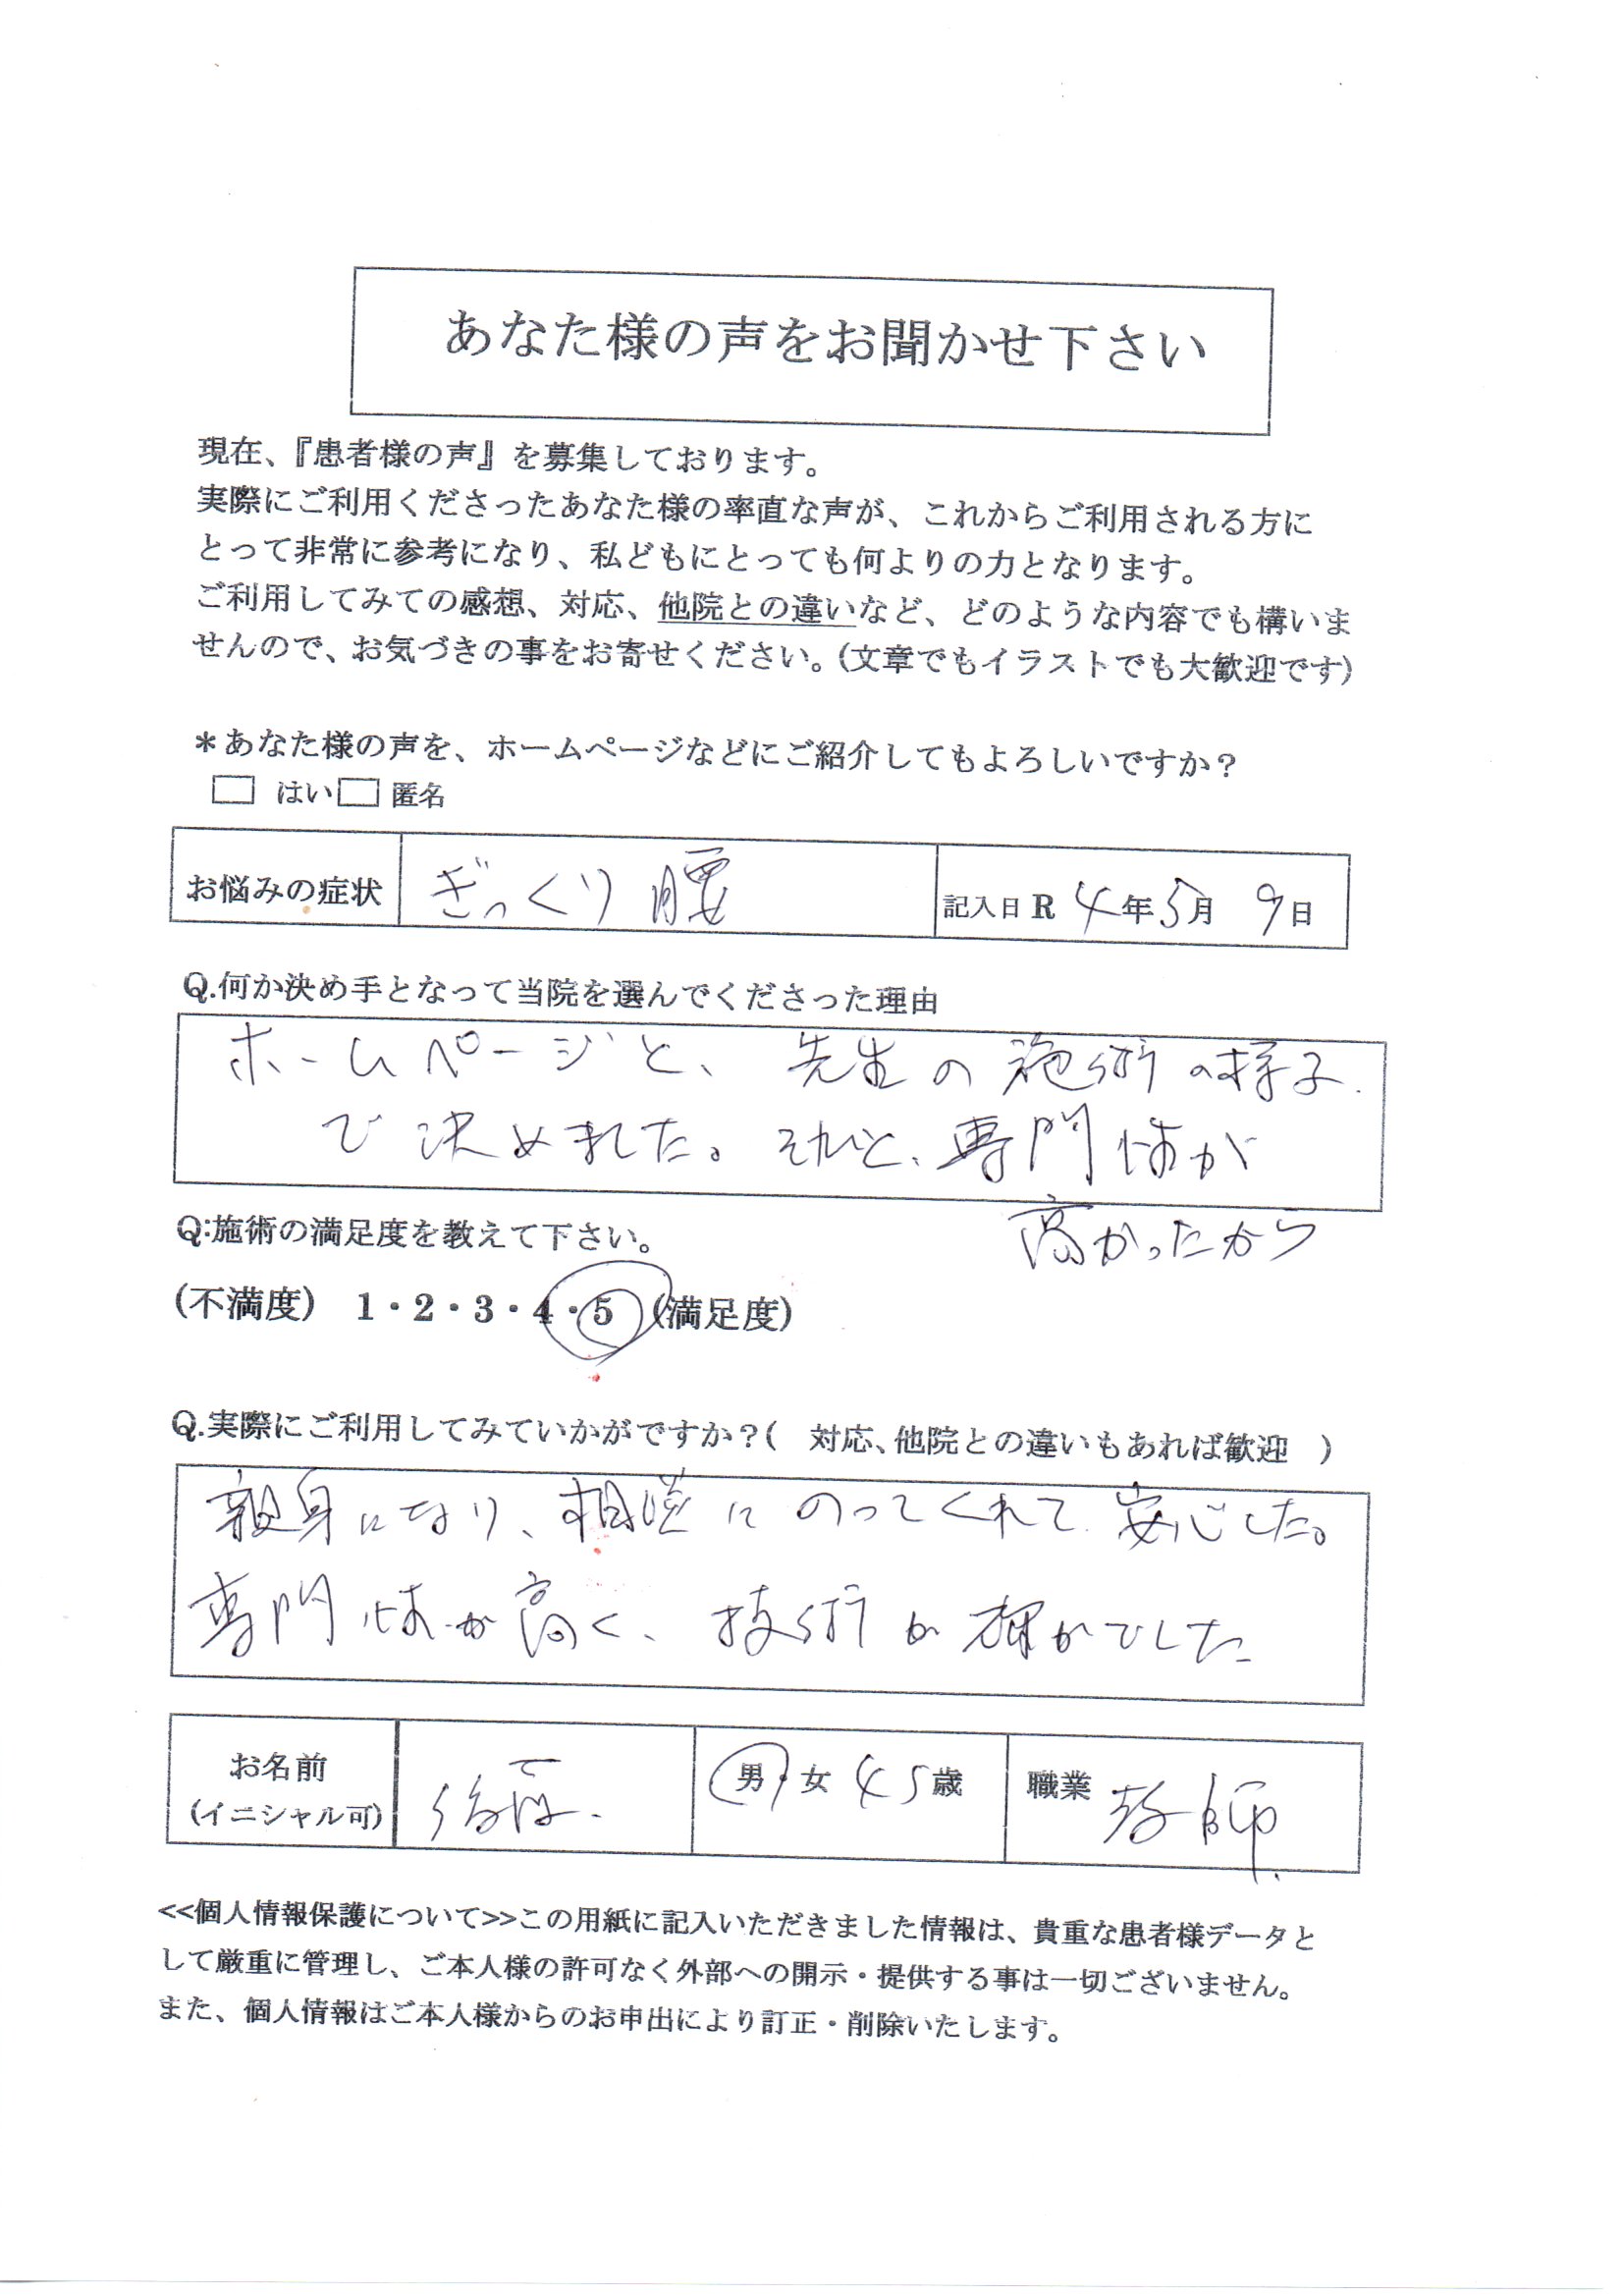 あなた様の声をお聞かせ下さい
現在、『患者様の声』を募集しております。
実際にご利用くださったあなた様の率直な声が、これからご利用される方に
とって非常に参考になり、私どもにとっても何よりの力となります。
ご利用してみての感想、対応、他院との違いなど、どのような内容でも構いま
せんので、お気づきの事をお寄せください。(文章でもイラストでも大歓迎です)
＊あなた様の声を、ホームページなどにご紹介してもよろしいですか？
□ はい □ 匿名
お悩みの症状 ぎっくり腰 記入日 R 4年5月 9日
Q.何か決め手となって当院を選んでくださった理由
ホームページと、先生の施術の様子
で決めました。それと、専門性が
高かったから
Q:施術の満足度を教えて下さい。
(不満度) 1・2・3・4・5 (満足度)
Q.実際にご利用してみていかがですか？( 対応、他院との違いもあれば歓迎 )
親身になり、相談にのってくれて安心した。
専門性が高く、技術が確かでした
お名前 男・女 45歳 職業 教師
(イニシャル可)
<<個人情報保護について>>この用紙に記入いただきました情報は、貴重な患者様データと
して厳重に管理し、ご本人様の許可なく外部への開示・提供する事は一切ございません。
また、個人情報はご本人様からのお申出により訂正・削除いたします。